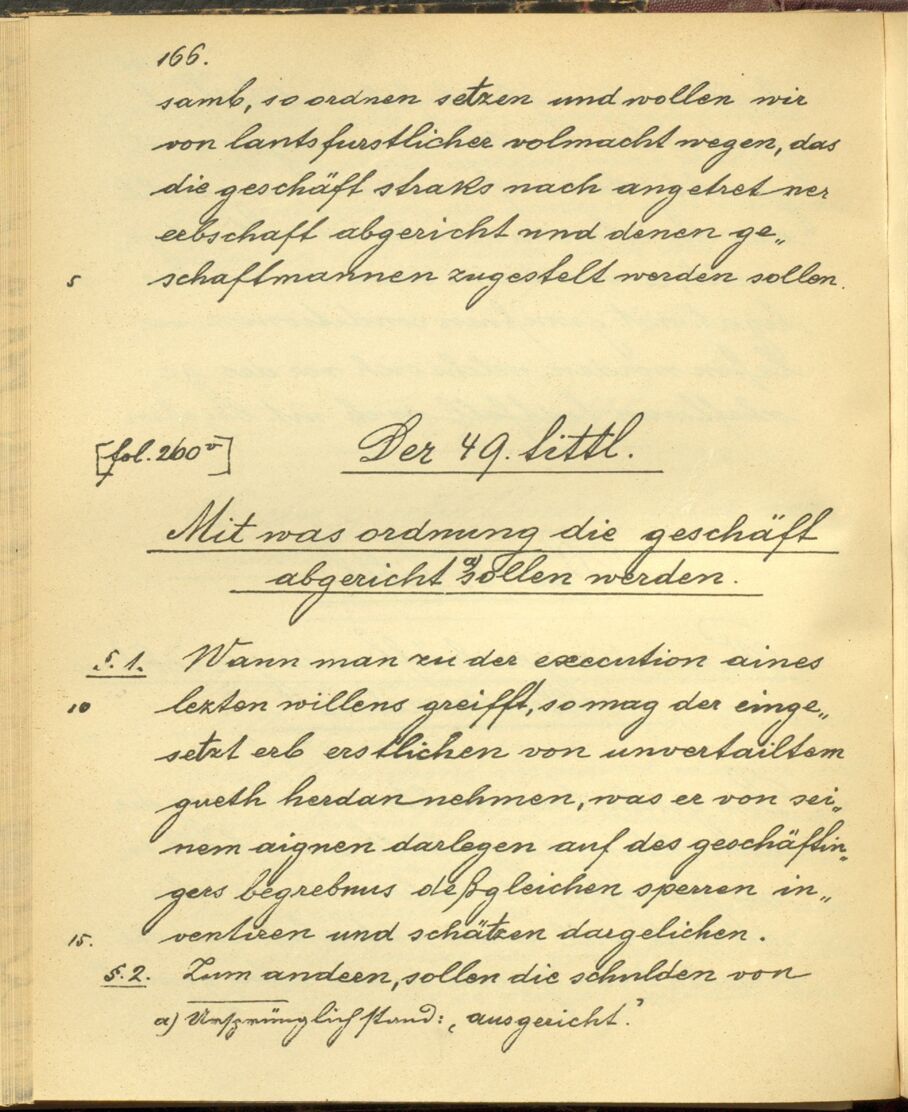 166.
samb, so ordnen setzen und wollen wir
von lantsfurstlicher volmacht wegen, das
die geschäft straks nach angetretner
erbschaft abgericht und denen ge„
5 schaftmannen zugestelt werden sollen.
[fol. 260v] Der 49. tittl.
Mit was ordnung die geschäft
abgericht a) sollen werden.
§. 1. Wann man zu der execution aines
10 lezten willens greifft, so mag der einge„
setzt erb erstlichen von unvertailtem
gueth herdan nehmen, was er von sei„
nem aignen darlegen auf des geschäftin„
gers begrebnus deßgleichen sperren in„
15. ventiren und schätzen dargelichen.
§. 2. Zum andern, sollen die schulden von
a) Ursprünglich stand: ‚ausgericht.’